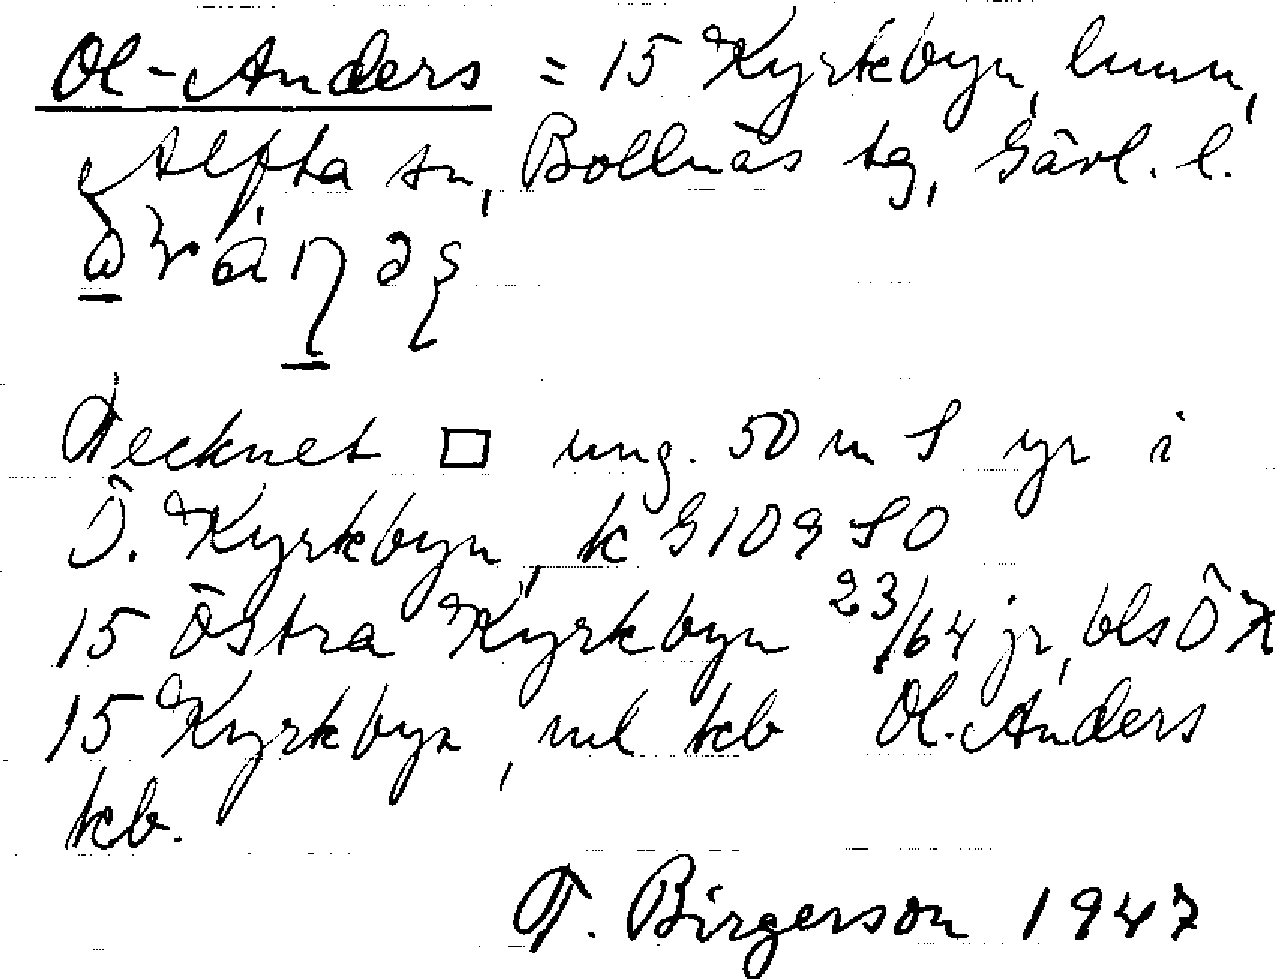 Ol-Anders = 15 Kyrkbyn, hmn,
Alfta sn, Bollnäs tg, Gävl. l.
Tecknet □ ung. 50 m S yr i
Ö. Kyrkbyn, k G109 SO
15 Östra Kyrkbyn 23/64 jr, bls ÖK
15 Kyrkbyn, ml kb Ol-Anders
kb.
T. Birgerson 1947